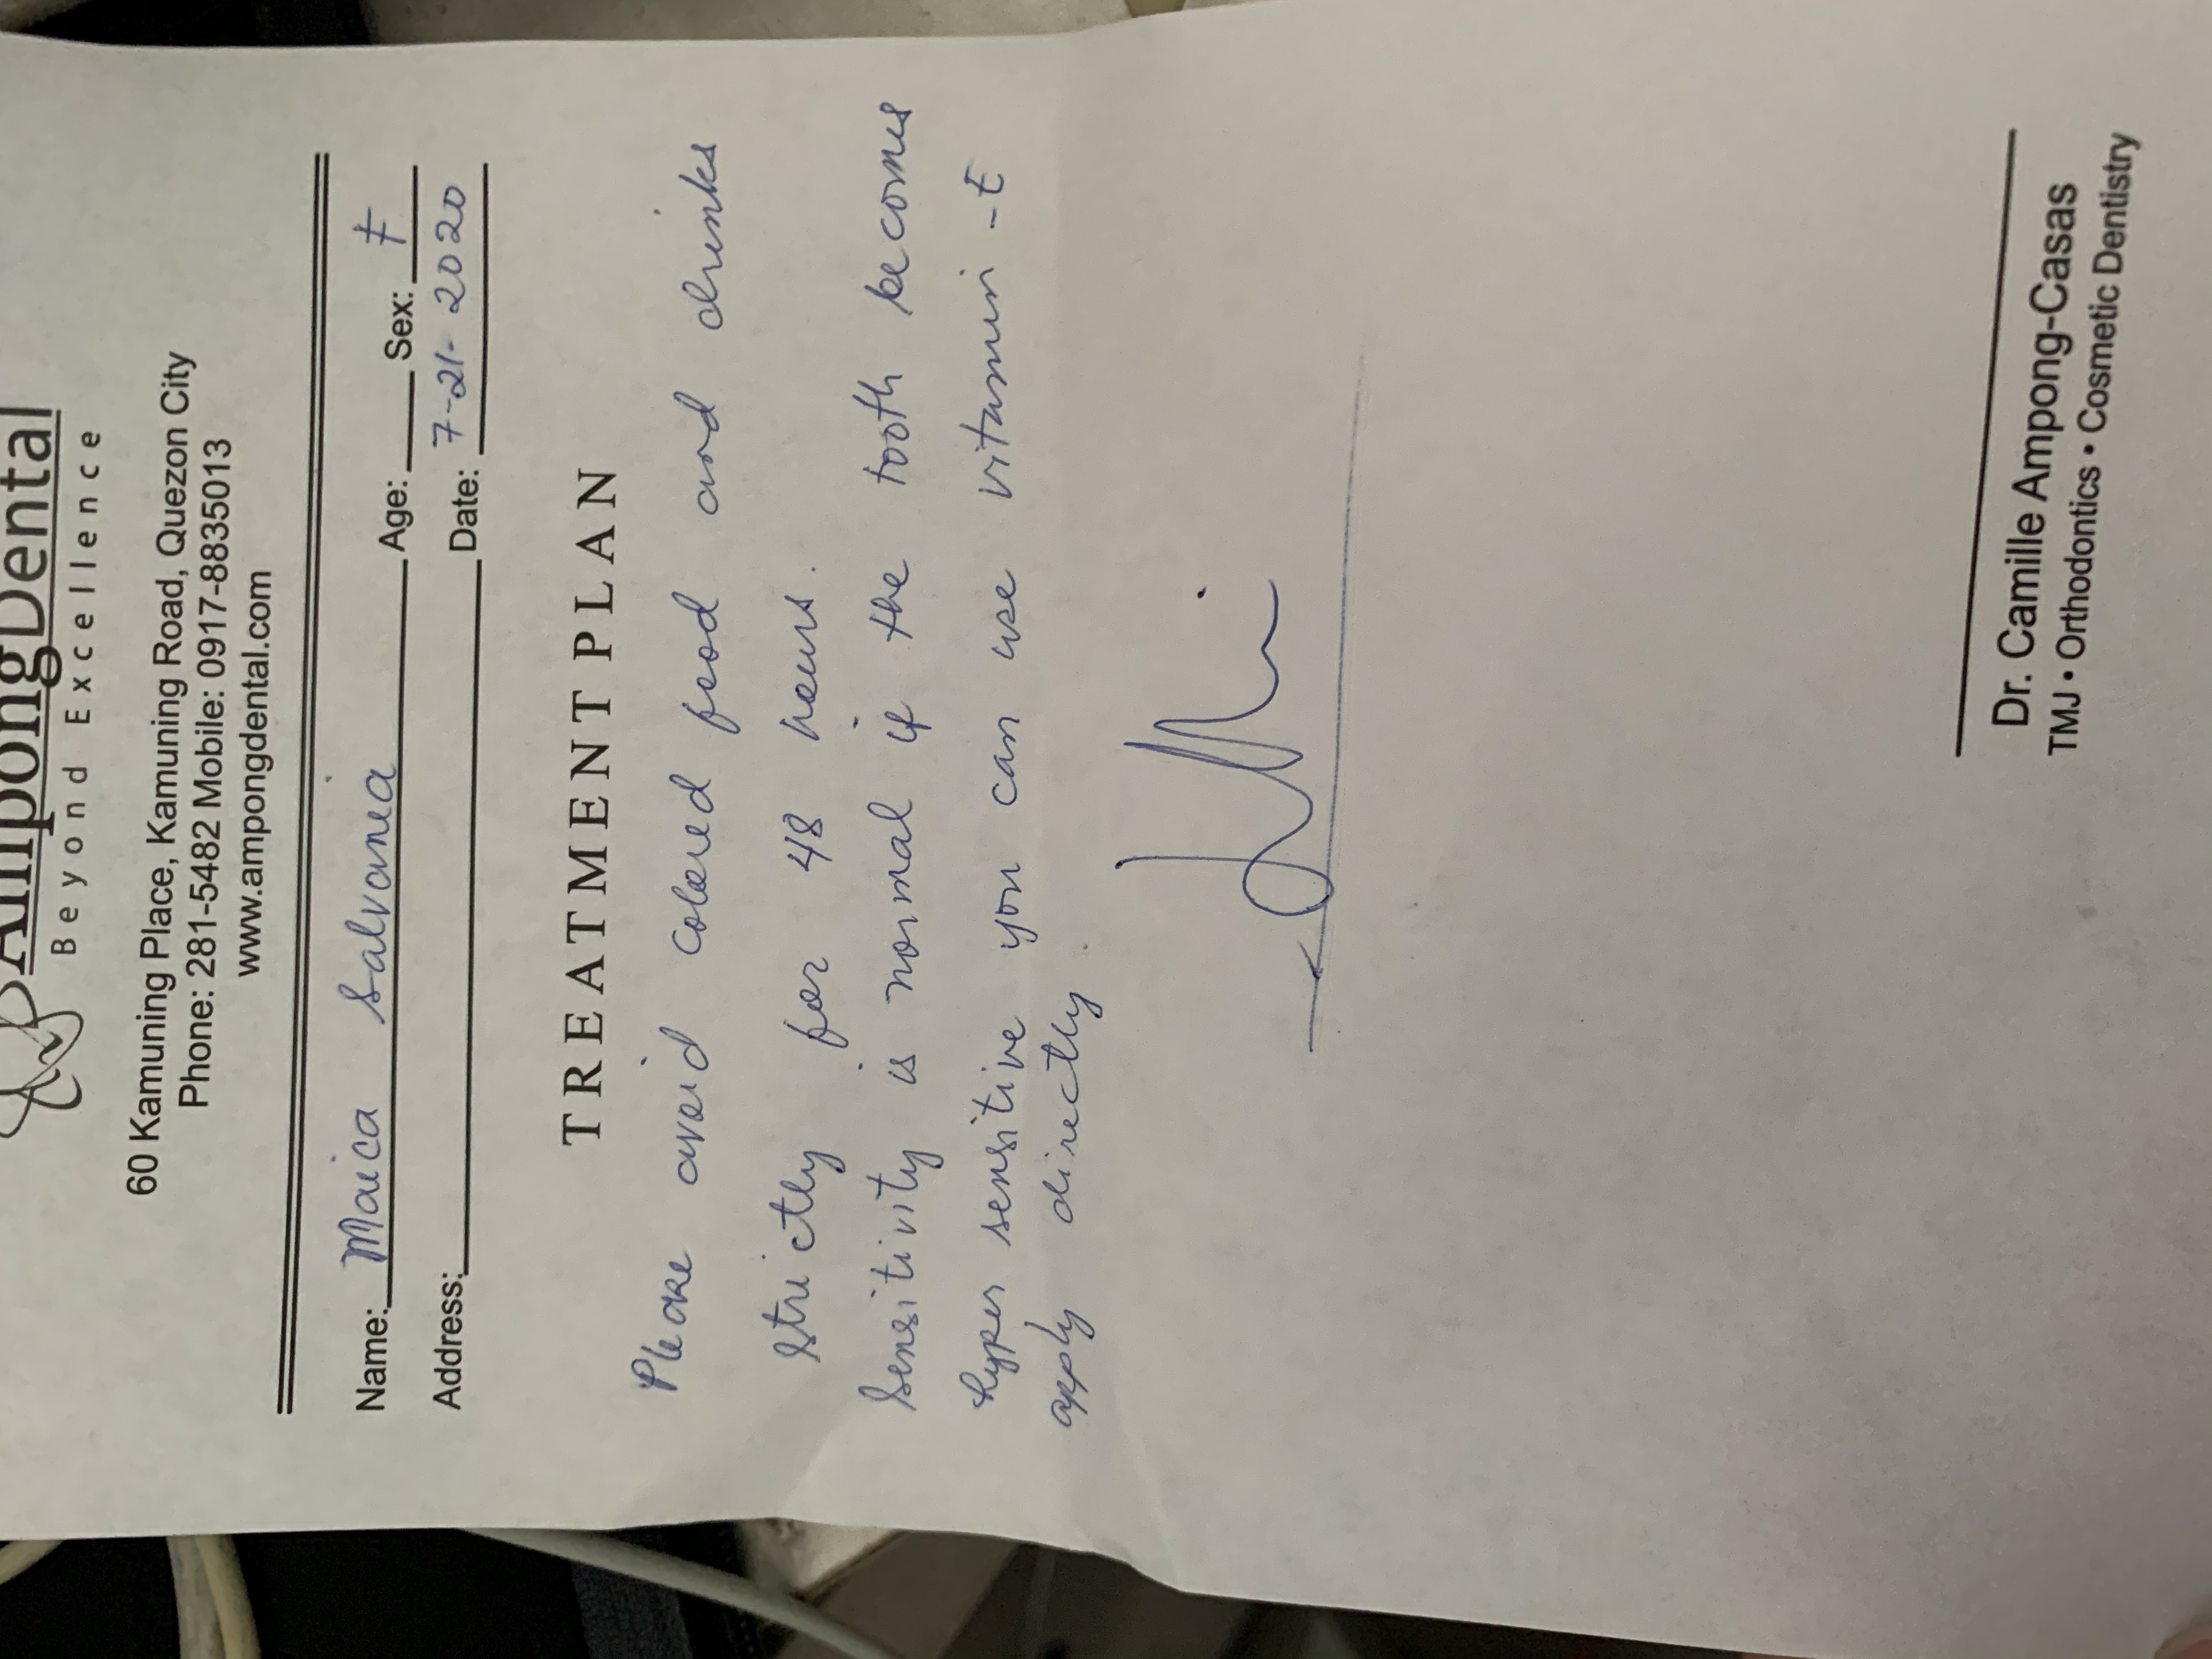 AmpongDental
Beyond Excellence
60 Kamuning Place, Kamuning Road, Quezon City
Phone: 281-5482 Mobile: 0917-8835013
www.ampongdental.com
Name: Maica Salvania Age: Sex: F
Address: Date: 7-21-2020
TREATMENT PLAN
Please avoid colored food and drinks
strictly for 48 hours.
Sensitivity is normal if the tooth becomes
hyper sensitive you can use vitamin -E
apply directly.
Dr. Camille Ampong-Casas
TMJ • Orthodontics • Cosmetic Dentistry